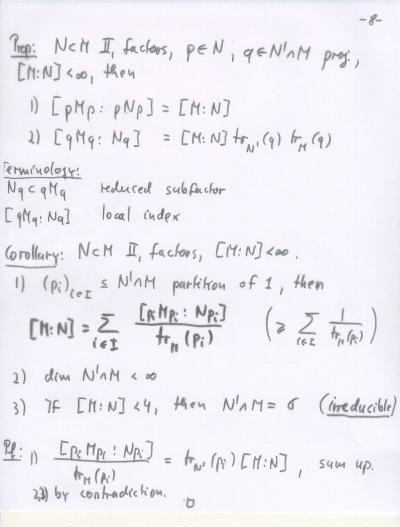 -8-
Prop: N⊂M II₁ factors, p∈N, q∈N'∩M proj.,
[M:N]<∞, then
1) [pMp : pNp] = [M:N]
2) [qMq : Nq] = [M:N] tr_N'(q) tr_M(q)
Terminology:
Nq ⊂ qMq reduced subfactor
[qMq : Nq] local index
Corollary: N⊂M II₁ factors, [M:N]<∞.
1) (p_i)_{i∈I} ⊆ N'∩M partition of 1, then
[M:N] = Σ_{i∈I} [p_i M p_i : N p_i] / tr_M(p_i) (≥ Σ_{i∈I} 1 / tr_M(p_i))
2) dim N'∩M < ∞
3) If [M:N] < 4, then N'∩M = ℂ (irreducible)
Pf: 1) [p_i M p_i : N p_i] / tr_M(p_i) = tr_N'(p_i) [M:N], sum up.
2,3) by contradiction.
□